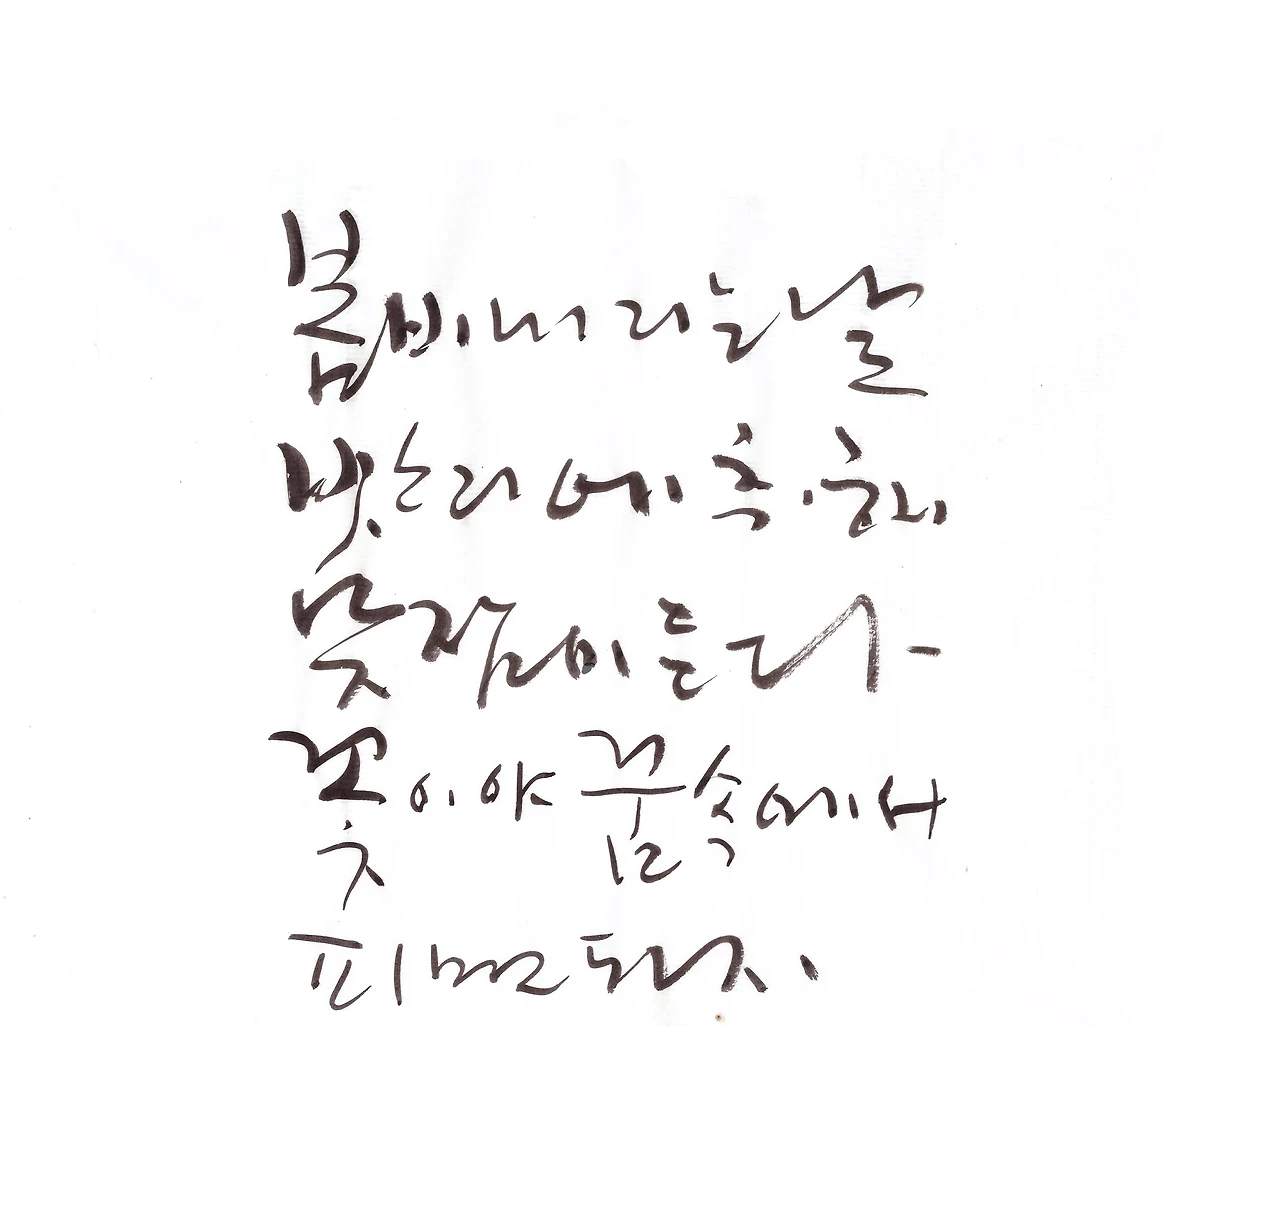 봄비 내리는 날
빗소리에 취해
낮잠이 든다 -
꽃이야 꿈속에서
피면 되지.